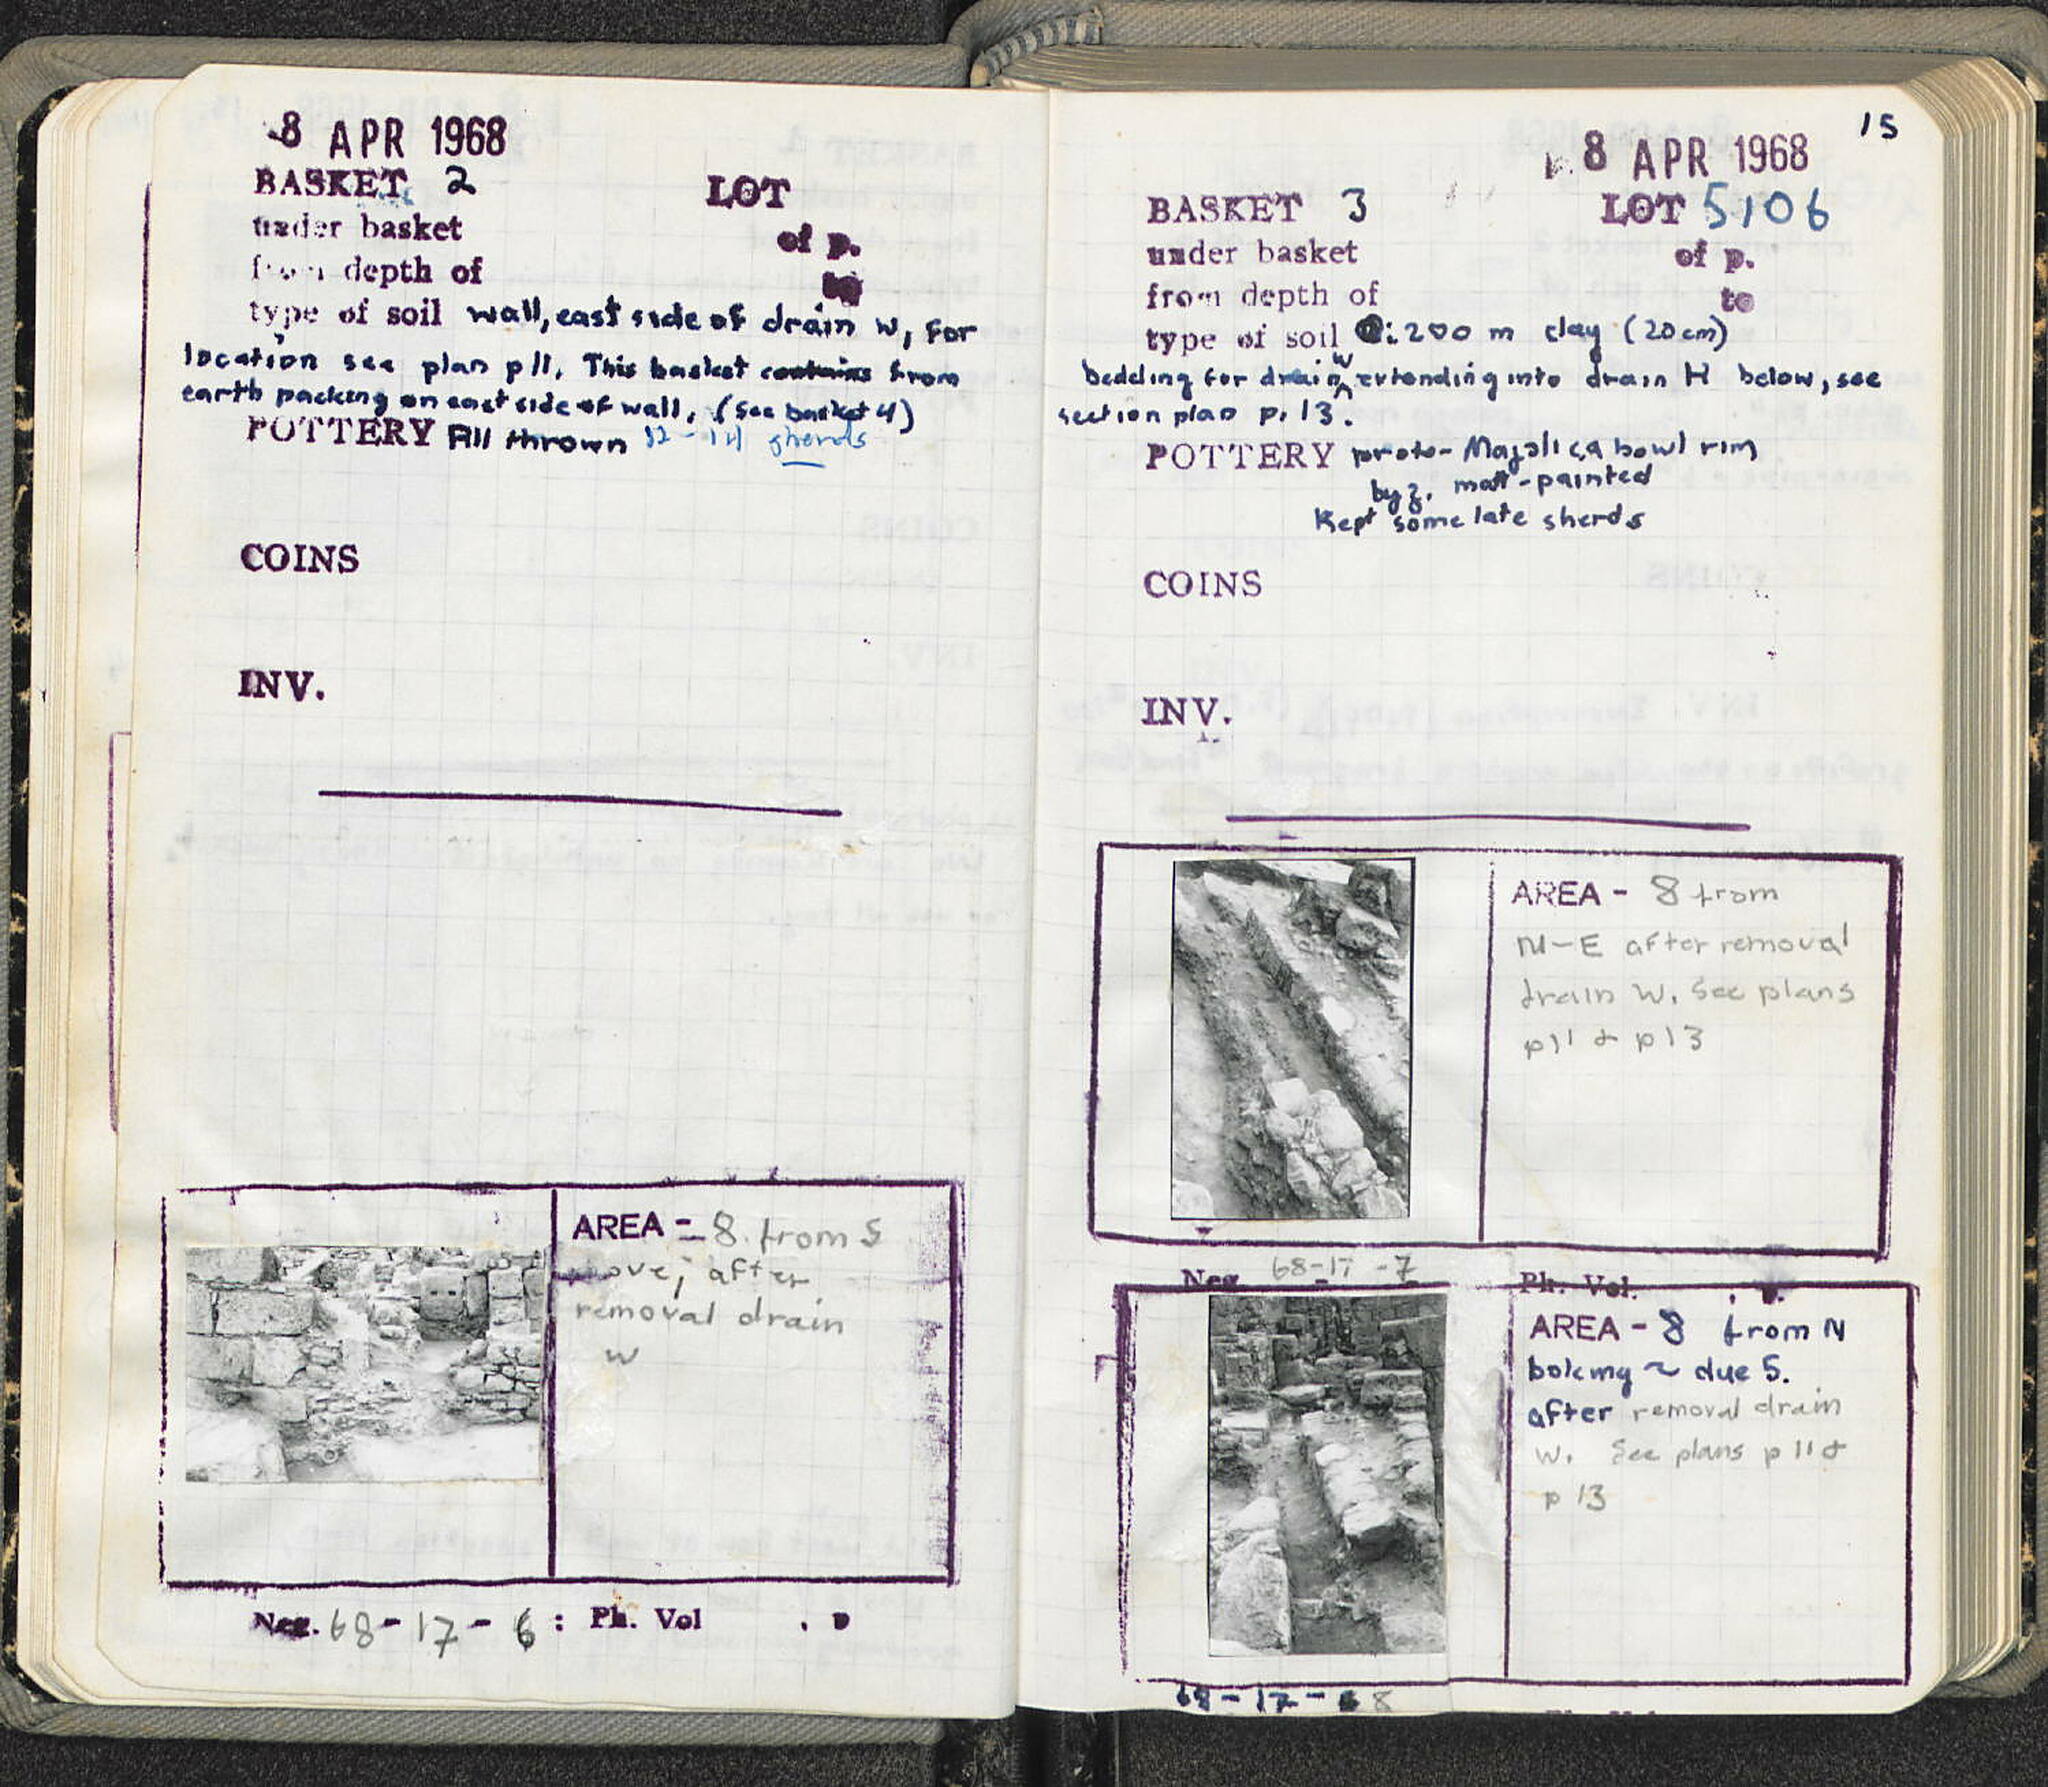 8 APR 1968
BASKET 2 LOT
under basket of p.
from depth of to
type of soil wall, east side of drain W, for
location see plan p11. This basket contains from
earth packing on east side of wall. (See basket 4)
POTTERY All thrown 12-14 sherds
COINS
INV.
AREA - 8 from S
above, after
removal drain
W
Neg. 68-17-6: Ph. Vol . p
15
8 APR 1968
BASKET 3 LOT 5106
under basket of p.
from depth of to
type of soil 0:200 m clay (20cm)
bedding for drain W extending into drain H below, see
section plan p. 13.
POTTERY proto-Majolica bowl rim
byz. matt-painted
Kept some late sherds
COINS
INV.
AREA - 8 from
N-E after removal
drain W. See plans
p11 & p13
Neg 68-17-7 Ph. Vol. . p.
AREA - 8 from N
looking ~ due S.
after removal drain
W. See plans p 11 &
p 13
68-17-8